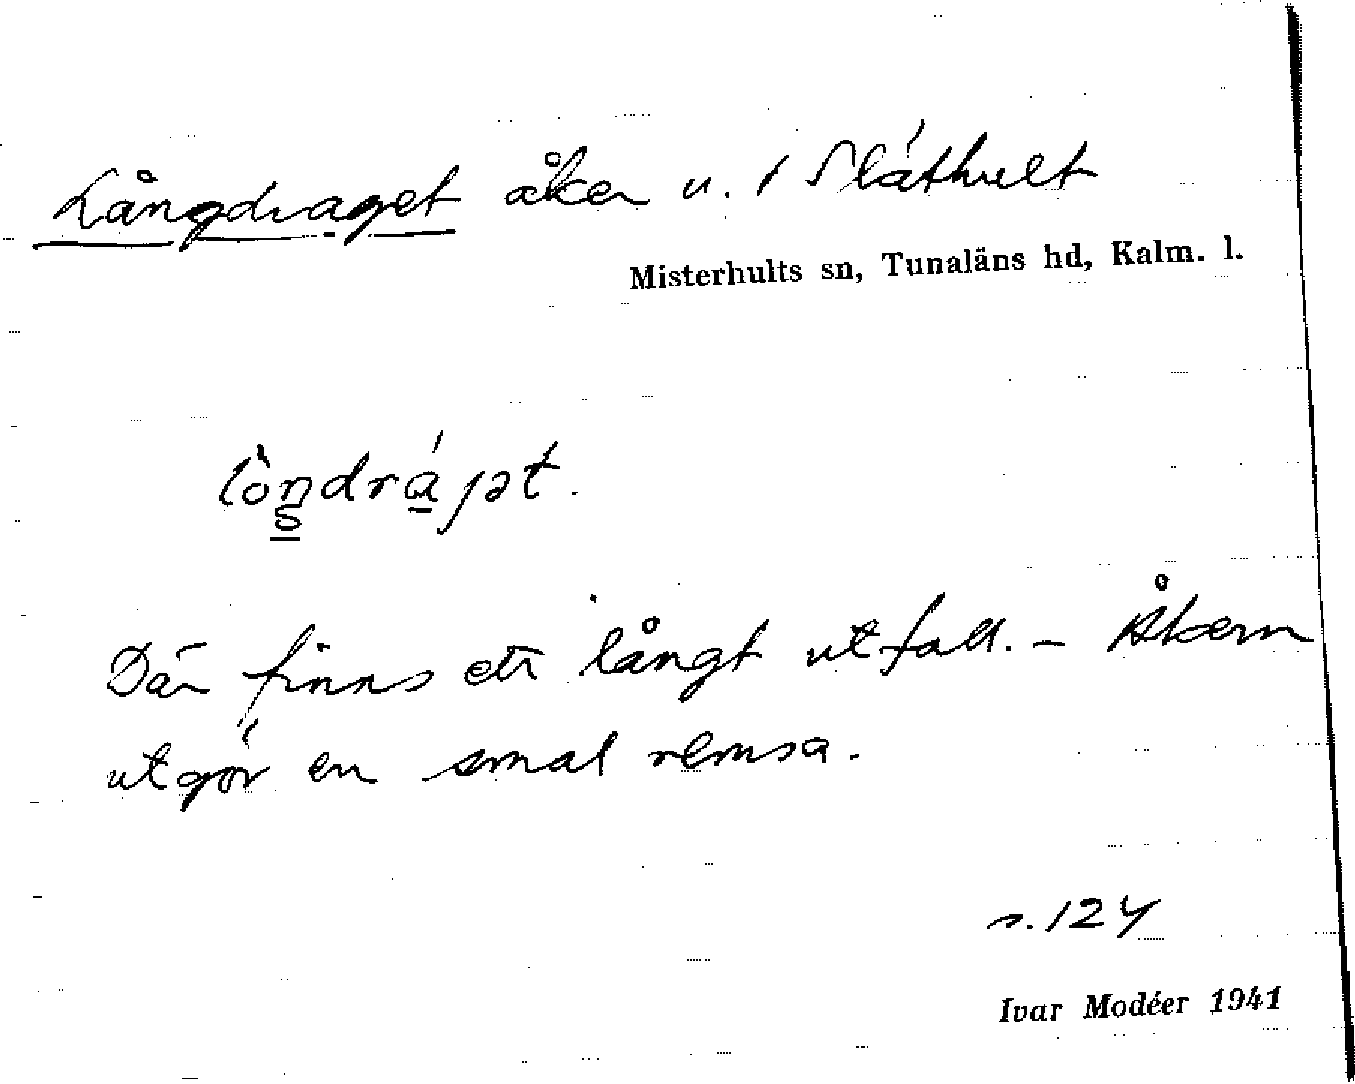 Långdraget åker u. 1 Släthult
Misterhults sn, Tunaläns hd, Kalm. l.
löŋdráɉət.
Där finns ett långt utfall. – Åkern
utgör en smal remsa.
s. 124
Ivar Modéer 1941